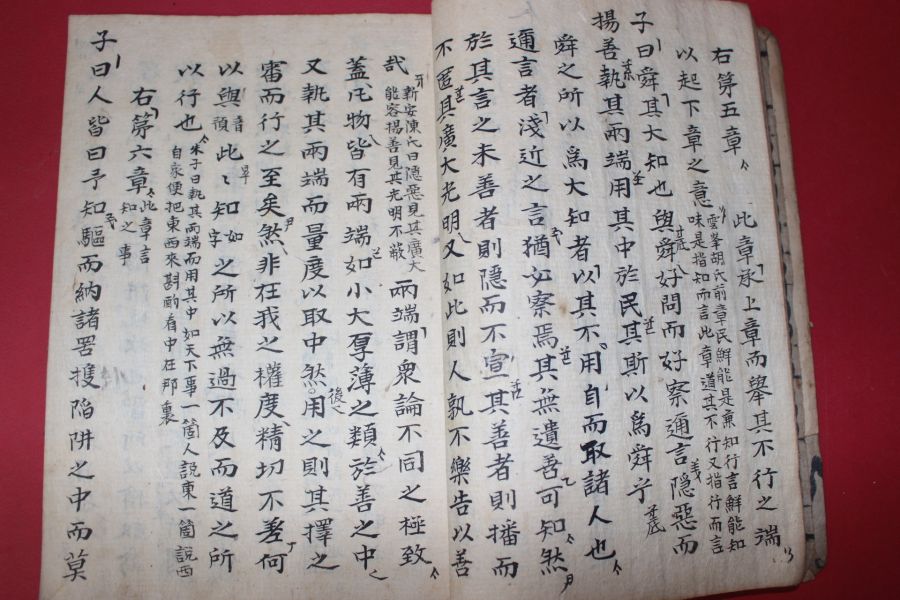 右第五章 此章承上章而擧其不行之端
以起下章之意 雲峯胡氏前章民鮮能是兼知行言鮮能知
味是指知而言此章道其不行又指行而言
子曰舜其大知也與舜好問而好察邇言隱惡而
揚善執其兩端用其中於民其斯以爲舜乎
舜之所以爲大知者以其不用自而取諸人也
邇言者淺近之言猶必察焉其無遺善可知然
於其言之未善者則隱而不宣其善者則播而
不匿其廣大光明又如此則人孰不樂告以善
哉 新安陳氏曰隱惡見其廣大
能容揚善見其光明不蔽 兩端謂衆論不同之極致
盖凡物皆有兩端如小大厚薄之類於善之中
又執其兩端而量度以取中然後用之則其擇之
審而行之至矣然非在我之權度精切不差何
以與 音預 此〻知 如字 之所以無過不及而道之所
以行也 朱子曰執其兩端而用其中如天下事一箇人說東一箇說西
自家便把東西來斟酌看中在那裏
右第六章 此章言
知之事
子曰人皆曰予知驅而納諸罟擭陷阱之中而莫